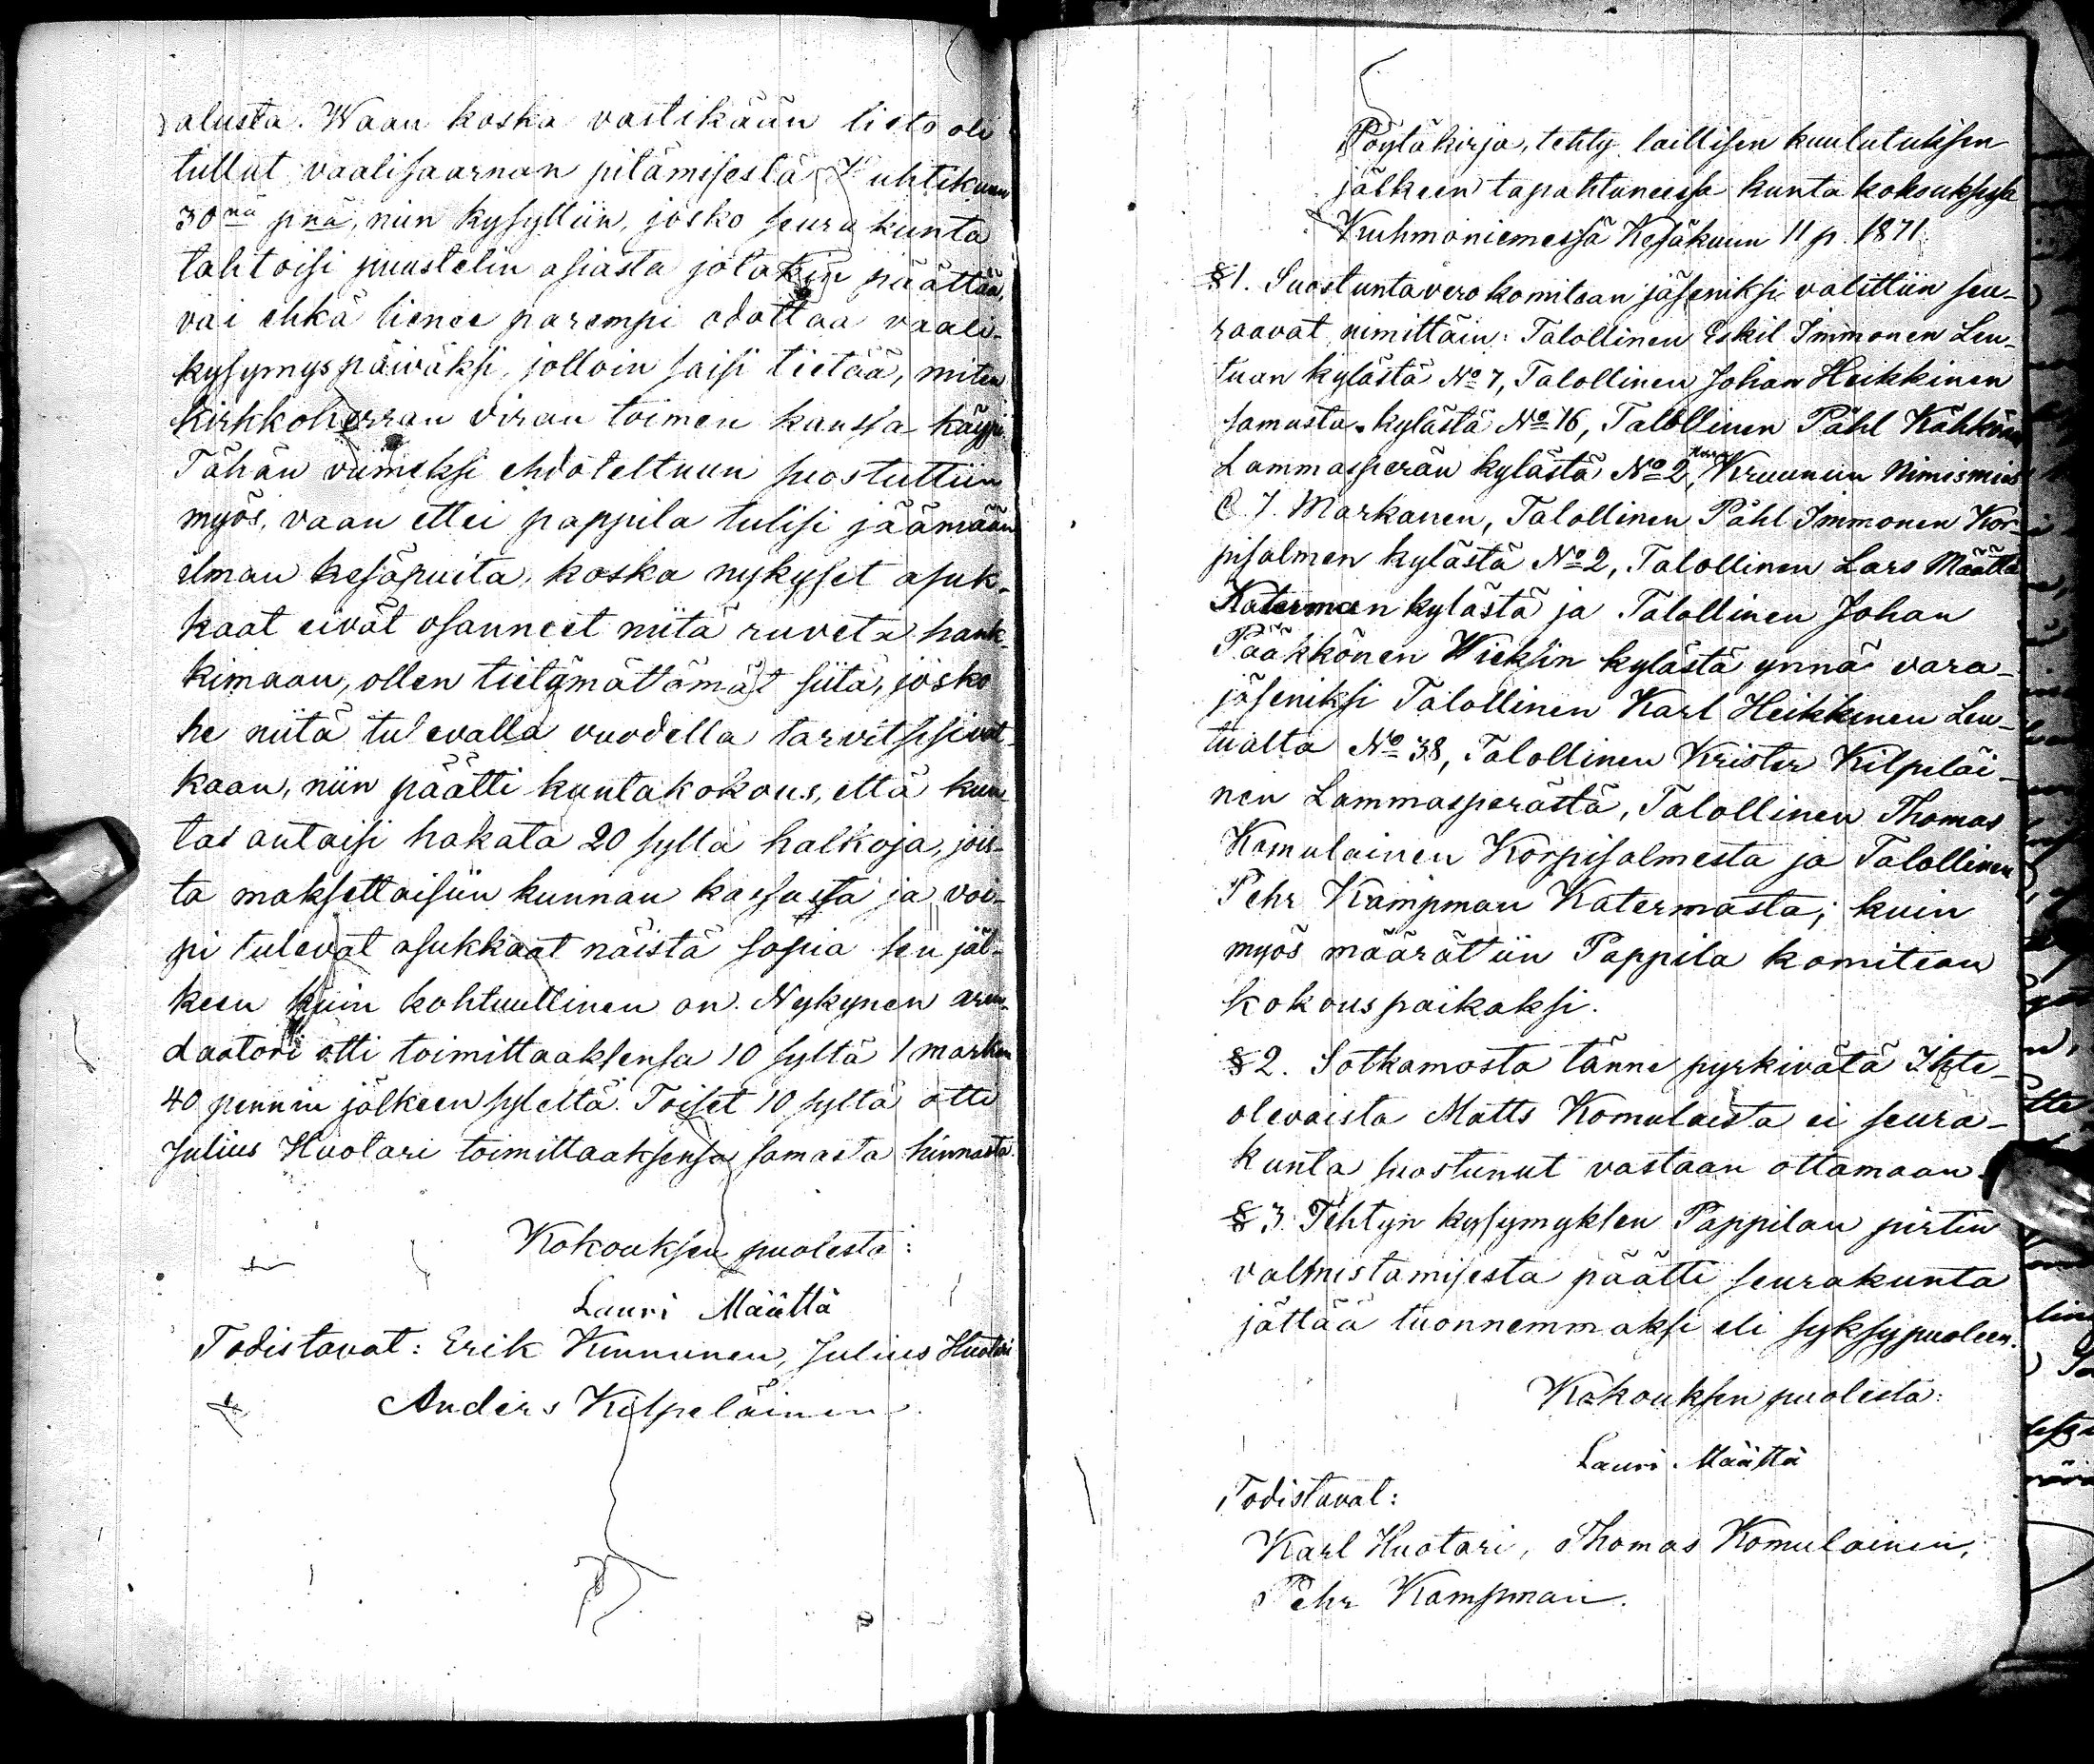 alusta. Waan koska vastikään tieto oli
tullut vaalisaarnan pitämisestä Huhtikuun
30nä pnä, niin kysyttiin, josko seurakunta
tahtoisi puustelin asiasta jotakin päättää,
vai ehkä lienee parempi odottaa vaali-
kysymyspäiväksi, jolloin saisi tietää, miten
kirkkoherran viran toimen kanssa käypi
Tähän viimeksi ehdoteltuun suostuttiin
myös, vaan ettei pappila tulisi jäämään
ilman kesäpuita, koska nykyset asuk-
kaat eivät osanneet niitä ruveta hank-
kimaan, ollen tietämättömät siitä, josko
he niitä tulevalla vuodella tarvitsisivat-
kaan, niin päätti kuntakokous, että kun-
ta antaisi hakata 20 syltä halkoja, jois-
ta maksettaisiin kunnan kassasta ja voi-
pi tulevat asukkaat näistä sopia sen jäl-
keen kuin kohtuullinen on. Nykynen aren-
daatori otti toimittaaksensa 10 syltä 1 markan
40 pennin jälkeen syleltä. Toiset 10 syltä otti
Julius Huotari toimittaaksensa samasta hinnasta.
Kokouksen puolesta:
Lauri Määttä
Todistavat: Erik Kinnunen, Julius Huotari
Anders Kilpeläinen.
Pöytäkirja, tehty laillisen kuulutuksen
jälkeen tapahtuneessa kunta kokouksessa
Kuhmoniemessä Kesäkuun 11 p. 1871.
§ 1. Suostuntavero komitean jäseniksi valittiin seu-
raavat nimittäin: Talollinen Eskil Immonen Len-
tuan kylästä No 7, Talollinen Johan Heikkinen
samasta kylästä No 16, Talollinen Påhl Kähkönen
Lammasperän kylästä No 2, Kruunun Nimismies
C. J. Markanen, Talollinen Påhl Immonen Kor-
pisalmen kylästä No 2, Talollinen Lars Määttä
Katerman kylästä ja Talollinen Johan
Pääkkönen Wieksin kylästä ynnä vara-
jäseniksi Talollinen Karl Heikkinen Len-
tualta No 38, Talollinen Krister Kilpeläi-
nen Lammasperästä, Talollinen Thomas
Komulainen Korpisalmesta ja Talollinen
Pehr Kampman Katermasta; kuin
myös määrättiin Pappila komitean
kokouspaikaksi.
§ 2. Sotkamosta tänne pyrkivätä Itste-
olevaista Matts Komulaista ei seura-
kunta suostunut vastaan ottamaan.
§ 3. Tehtyn kysymyksen Pappilan pirtin
valmistamisesta päätti seurakunta
jättää tuonnemmaksi eli syksypuoleen.
Kokouksen puolesta:
Lauri Määttä
Todistavat:
Karl Huotari, Thomas Komulainen,
Pehr Kampman.